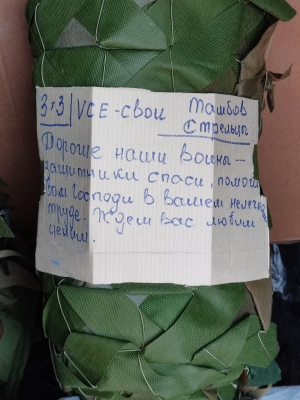 3х3 VСЕ-СВОИ Тамбов
Стрельцы
Дорогие наши воины-
защитники спаси, помоги
вам господи в вашем нелегком
труде. Ждем вас любим
ценим.